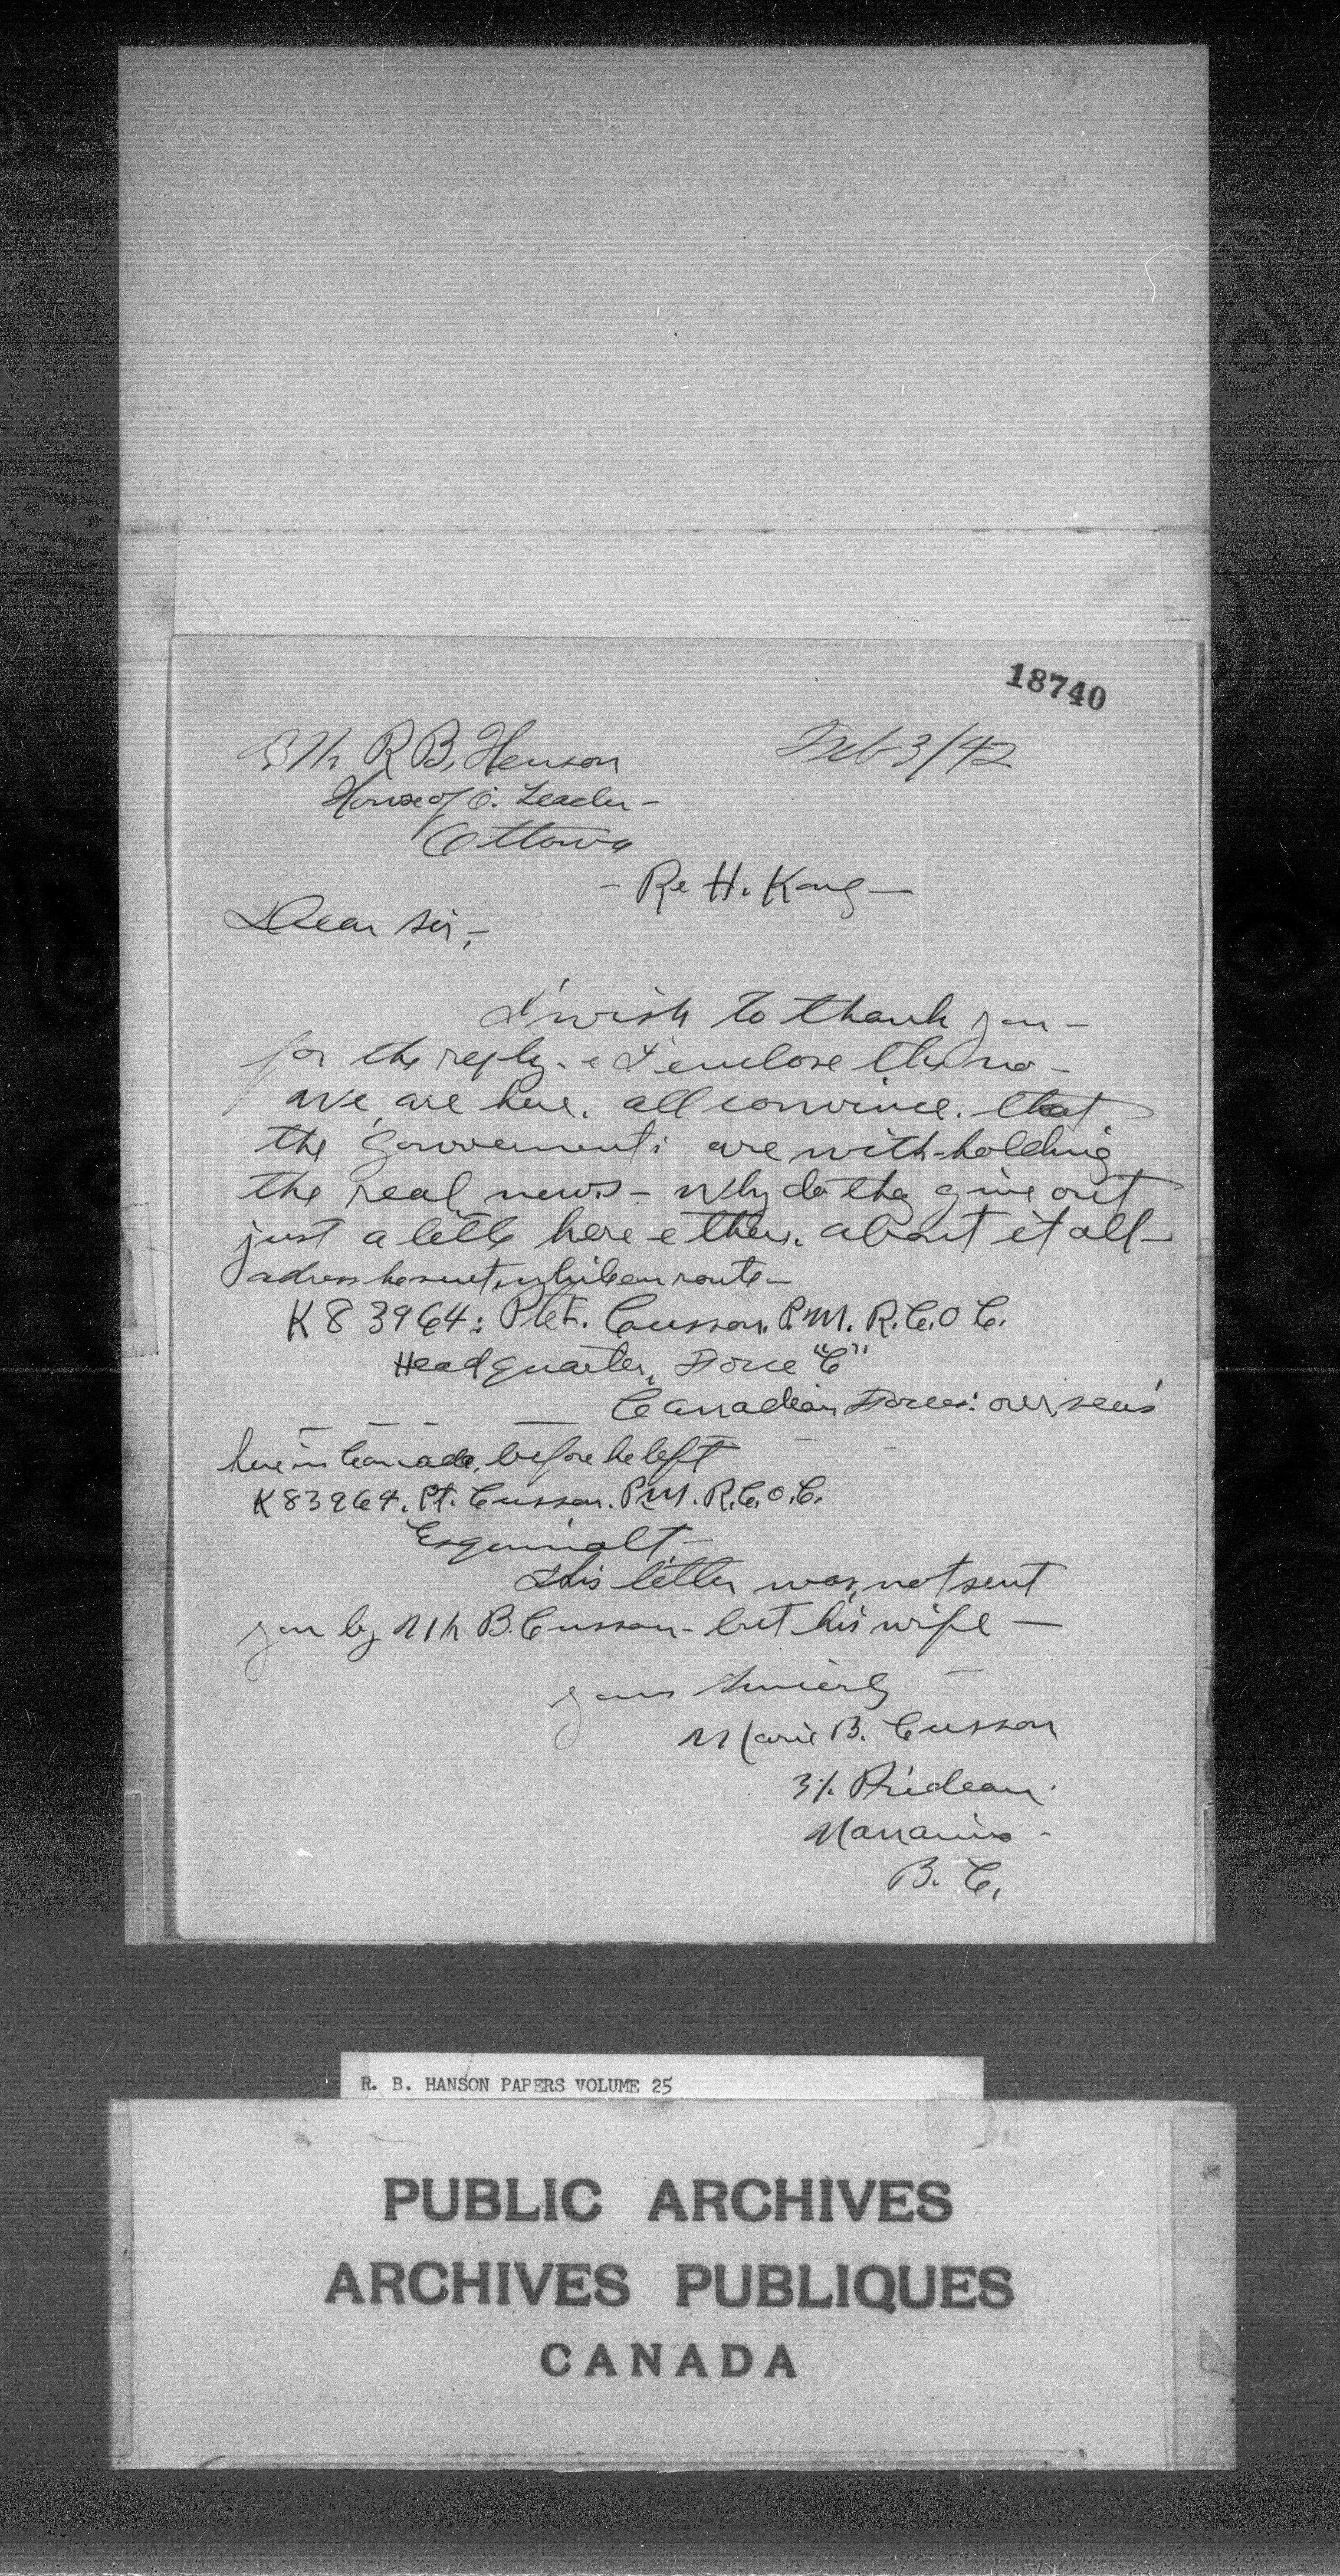 18740
Mr R B, Henson
Feb 3/42
House of C. Leader -
Ottawa
- Re H. Kong -
Dear Sir, -
I wish to thank you -
for the reply. e I enclose the no -
We are here. all convince. that
the Gouvernments are with-holding
the real news - Why do they give out
just a little here e there. about it all -
adress he sent, while en route -
K 83964: Pte. Cusson. P.M. R.C.O C.
Headquarter, Force "C"
Canadian Forces: overseas
here in Canada, before he left
K 83964. Pt. Cusson. P.M. R.C.O.C.
Esquimalt -
This letter was, not sent
you by Mr B. Cusson - but his wife -
yours Sincerly
Marie B. Cusson
Prideau.
Nanaimo -
B. C.
R. B. HANSON PAPERS VOLUME 25
PUBLIC ARCHIVES
ARCHIVES PUBLIQUES
CANADA